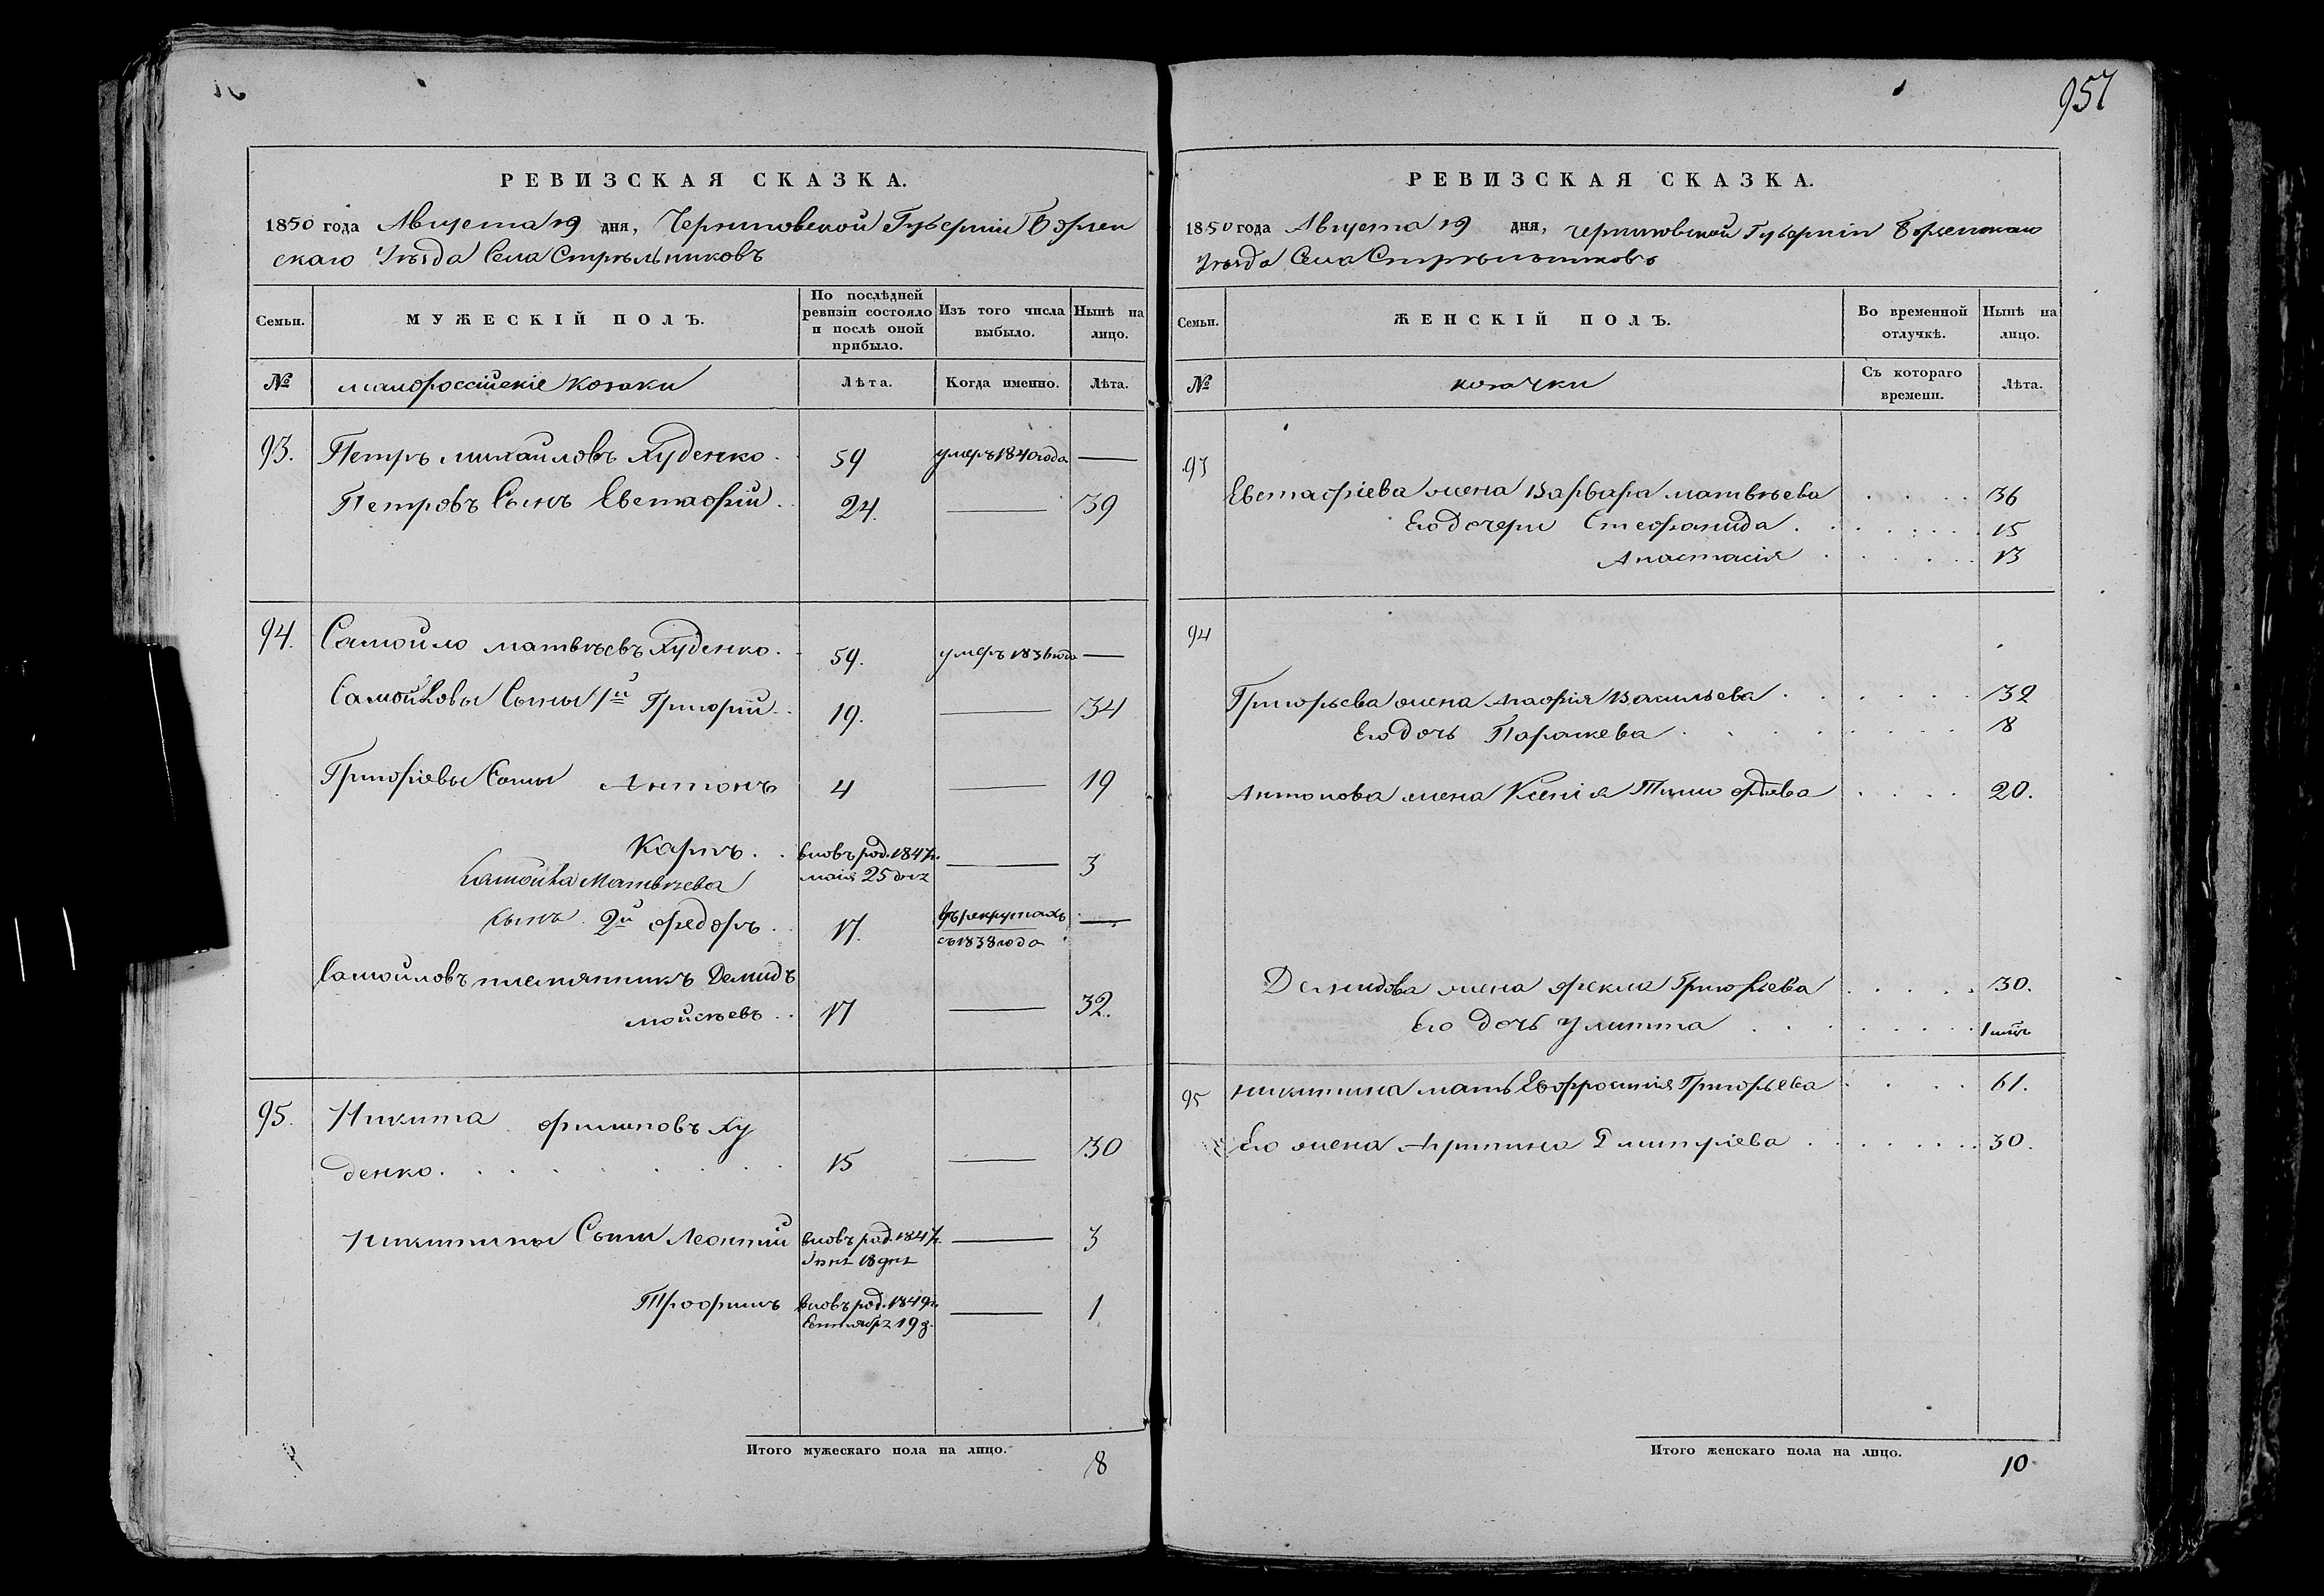 957
РЕВИЗСКАЯ СКАЗКА.
1850 года Августа 19 дня, Черниговской Губерніи Борзен
скаго Уѣзда Села Стрѣльниковъ
Семьи.
МУЖЕСКІЙ ПОЛЪ.
По послѣдней ревизіи состояло и послѣ оной прибыло.
Изъ того числа выбыло.
Нынѣ на лицо.
№
малороссійскіе козаки
Лѣта.
Когда именно.
Лѣта.
93. Петръ Михайловъ Худенко. 59 умеръ 1840 года —
Петровъ Сынъ Евстафій. 24. — 39
94. Самойло Матвѣевъ Худенко. 59. умеръ 1836 года —
Самойловы Сыны 1й Григорій. 19. — 34
Григорьевы Сыны Антонъ 4 — 19
Карпъ. вновь род. 1847г. маія 25 дня — 3
Самойла Матвѣева
сынъ 2й Федоръ. 17. въ рекрутахъ съ 1838 года —
Самойловъ племянникъ Демидъ
Мойсѣевъ. 17 — 32.
95. Никита Филиповъ Ху
денко. 15 — 30
Никитины Сыны Леонтій вновь род. 1847г. 18 дня — 3
Трофимъ вновь род. 1849г. Сентября 19 д. — 1
Итого мужескаго пола на лицо. 8
РЕВИЗСКАЯ СКАЗКА.
1850 года Августа 19 дня, Черниговской Губерніи Борзенскаго
Уѣзда Села Стрѣльниковъ
Семьи.
ЖЕНСКІЙ ПОЛЪ.
Во временной отлучкѣ.
Нынѣ на лицо.
№
козачки
Съ котораго времени.
Лѣта.
93
Евстафіева жена Варвара Матвѣева 36
Его дочери Стефанида 15
Анастасія 13
94
Григорьева жена Агафія Васильева 32
Его дочь Параскева 8
Антонова жена Ксенія Тимофѣева 20.
Демидова жена Фекла Григорьева 30.
Его дочь Улита 1
95 Никитина мать Евфросинія Григорьева 61.
Его жена Ирина Дмитріева 30.
Итого женскаго пола на лицо. 10